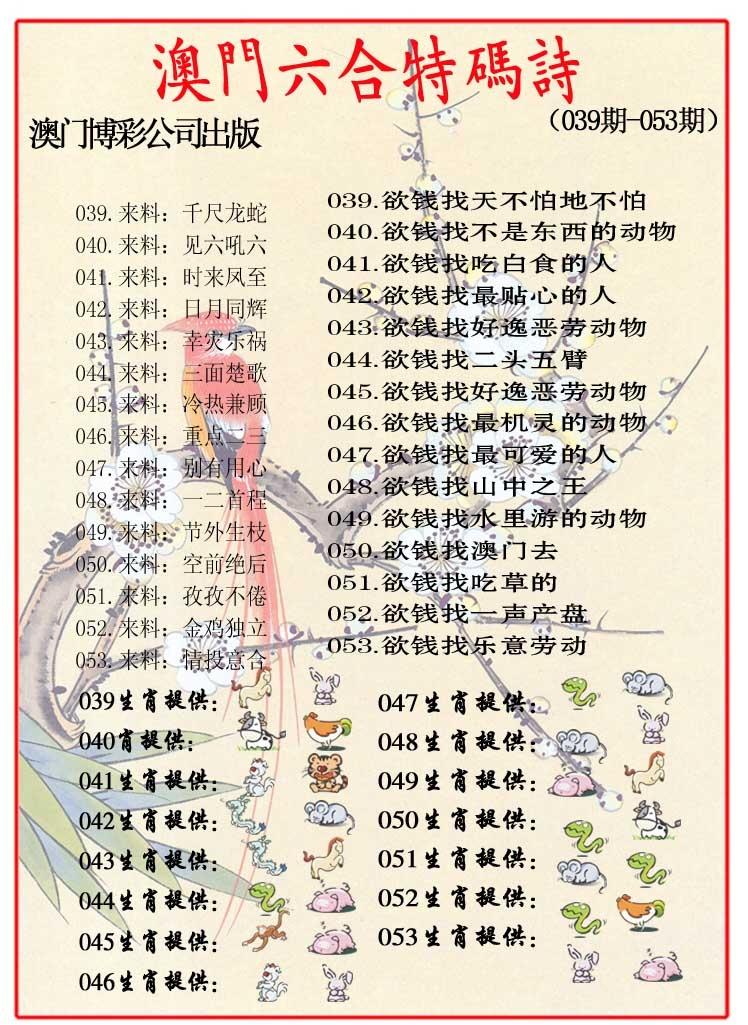 澳門六合特碼詩
澳门博彩公司出版
（039期-053期）
039.来料：千尺龙蛇
040.来料：见六吼六
041.来料：时来凤至
042.来料：日月同辉
043.来料：幸灾乐祸
044.来料：三面楚歌
045.来料：冷热兼顾
046.来料：重点二三
047.来料：别有用心
048.来料：一二首程
049.来料：节外生枝
050.来料：空前绝后
051.来料：孜孜不倦
052.来料：金鸡独立
053.来料：情投意合
039.欲钱找天不怕地不怕
040.欲钱找不是东西的动物
041.欲钱找吃白食的人
042.欲钱找最贴心的人
043.欲钱找好逸恶劳动物
044.欲钱找二头五臂
045.欲钱找好逸恶劳动物
046.欲钱找最机灵的动物
047.欲钱找最可爱的人
048.欲钱找山中之王
049.欲钱找水里游的动物
050.欲钱找澳门去
051.欲钱找吃草的
052.欲钱找一声产盘
053.欲钱找乐意劳动
039生肖提供：
040肖提供：
041生肖提供：
042生肖提供：
043生肖提供：
044生肖提供：
045生肖提供：
046生肖提供：
047生肖提供：
048生肖提供：
049生肖提供：
050生肖提供：
051生肖提供：
052生肖提供：
053生肖提供：